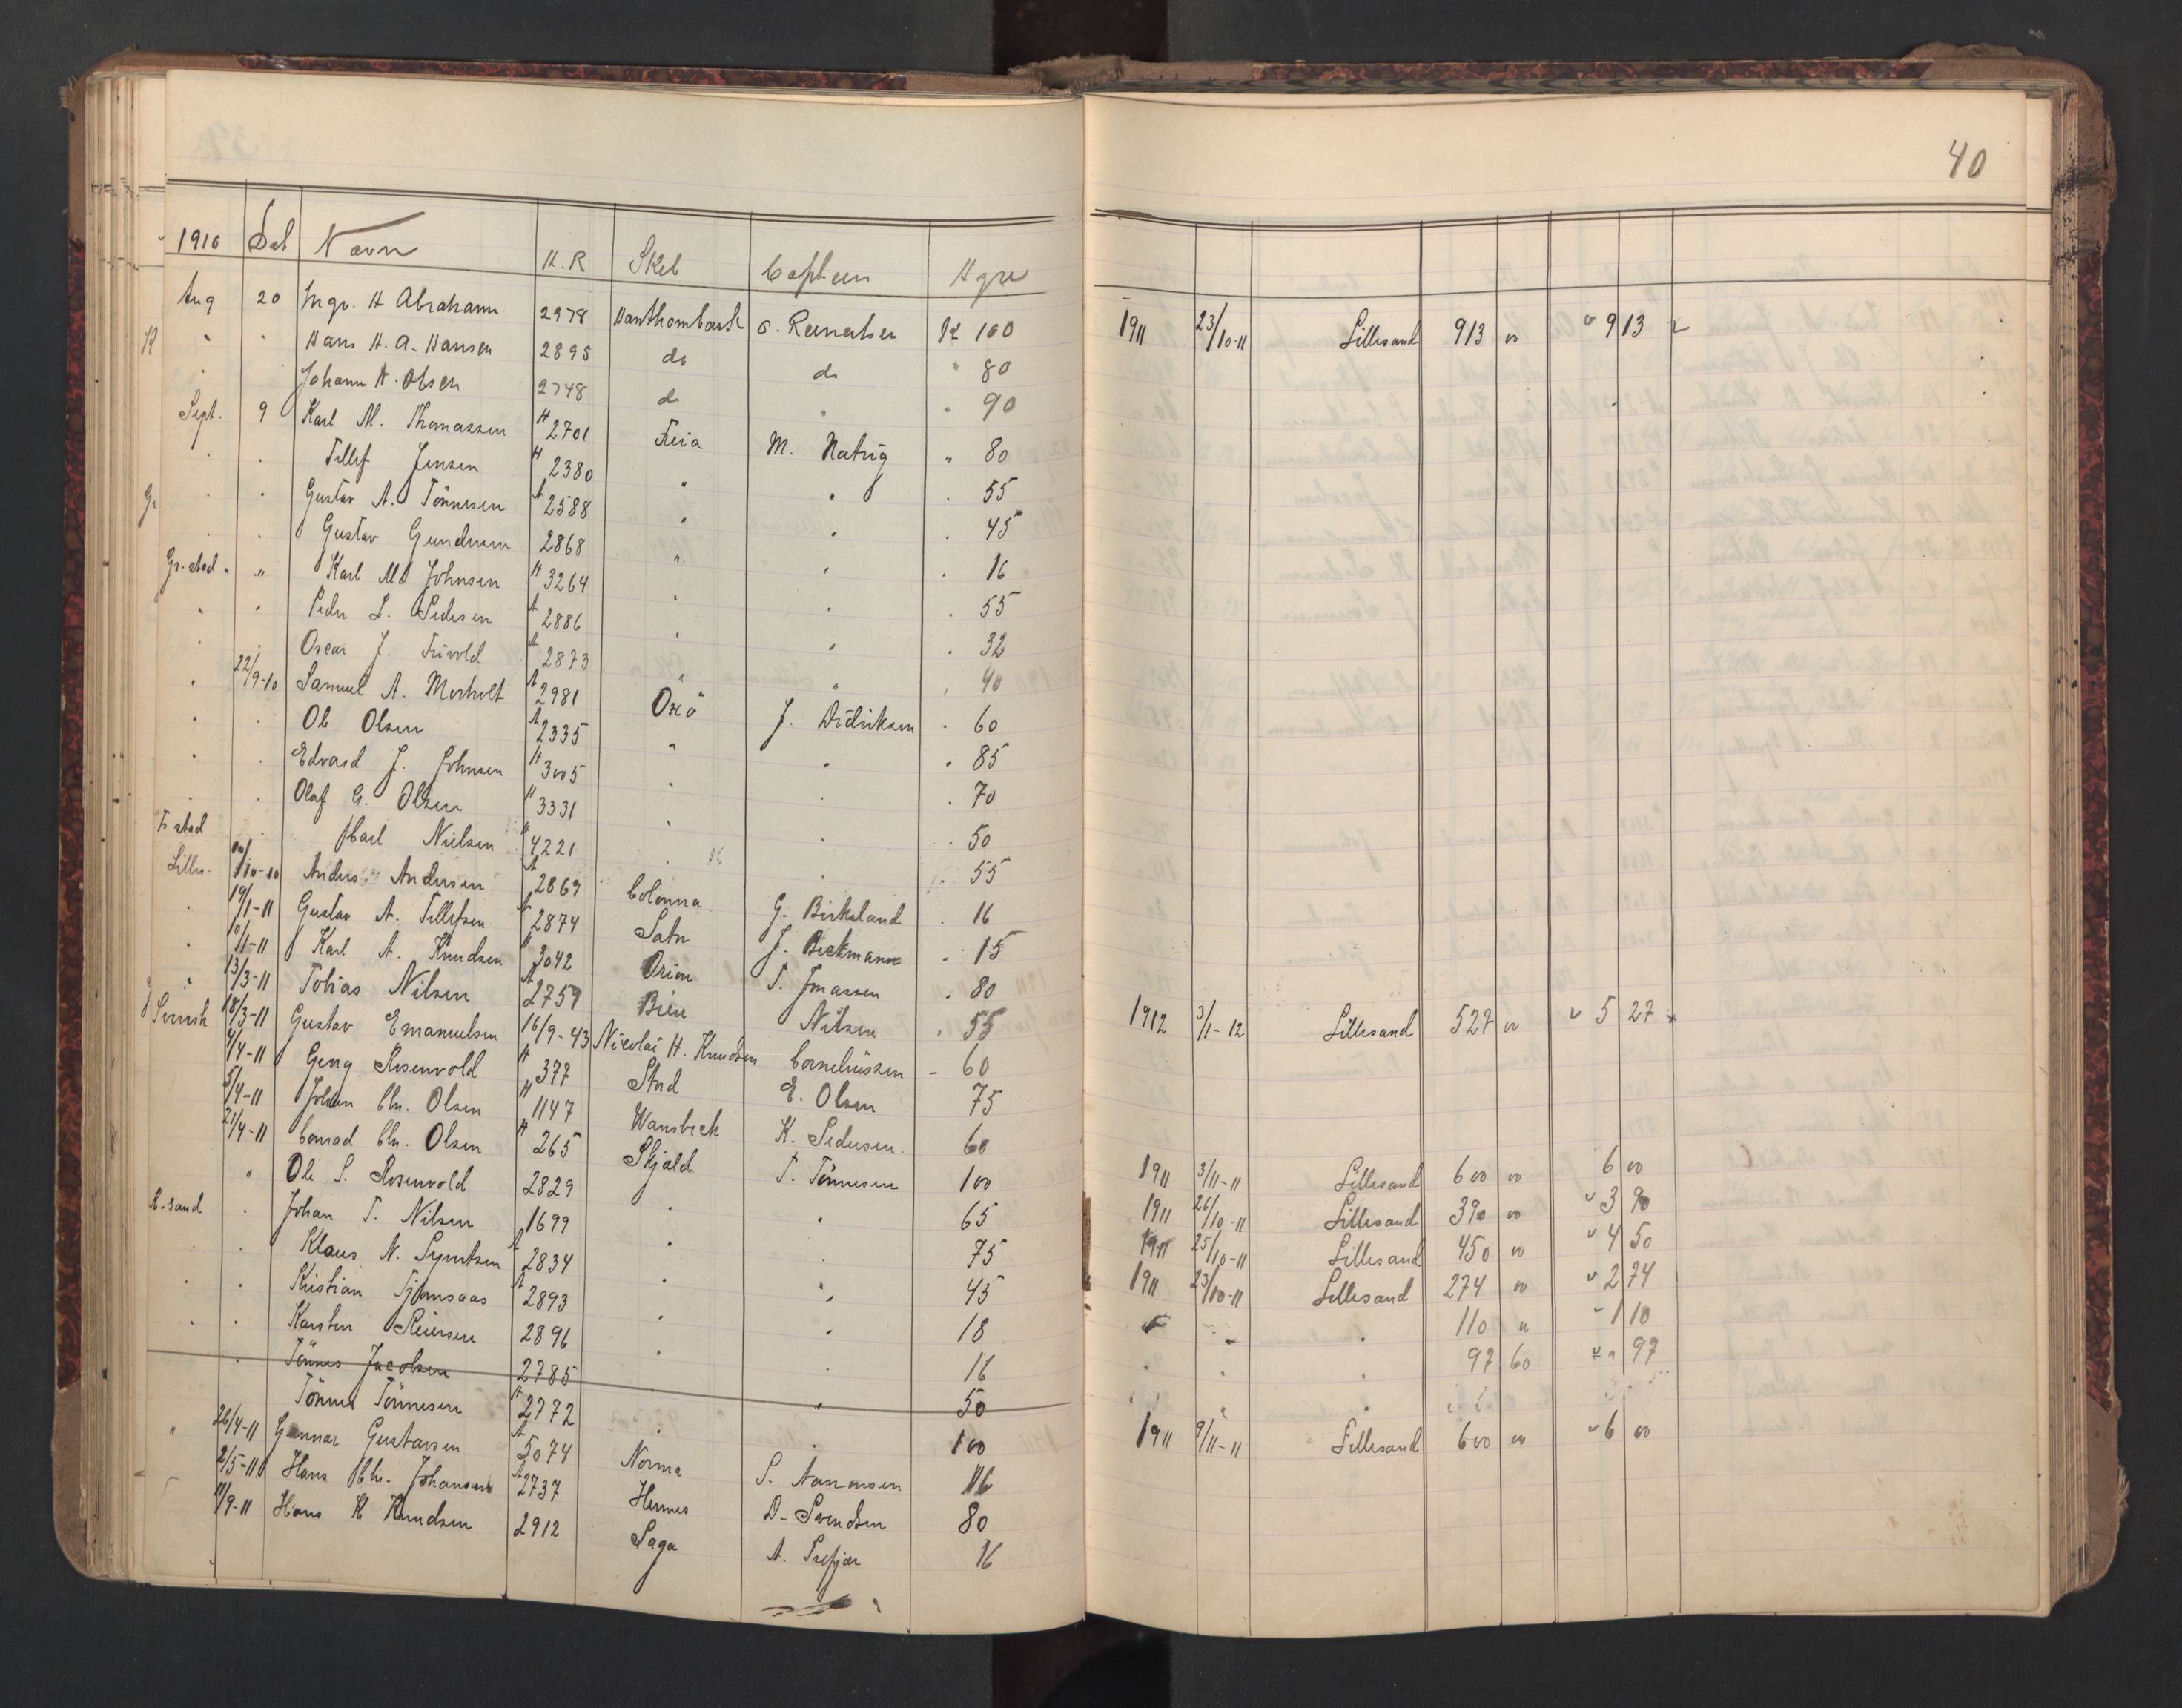 40
1910 Dat Navn H.R Skib Captein Hyre
Aug 20 Ingv. H Abraham 2978 o. Reinertsen Kr 100 1911 23/10-11 Lillesand 913 00 913
H " " Hans H. A. Hansen 2895 do do " 80
" " Johann N. Olsen 2748 do " " 90
Sept. 9 Karl M. Thomassen A 2701 Freia M. Natvig " 80
" " Tellef Jensen A 2380 " " " 55
Gr " " Gustav A. Tönnesen A 2588 " " " 45
" " Gustav Gundersen 2868 " " " 16
Gr.stad " " Karl M. Johnsen A 3264 " " " 55
" " Peder L. Pedersen A 2886 " " " 32
" " Oscar J. Trivold A 2873 " " " 40
" 22/9-10 Samuel A. Morholt A 2981 Oxö J. Didriksen " 60
" " Ole Olsen A 2335 " " " 85
" " Edvard J. Johnsen A 3005 " " " 70
" " Olaf G. Olsen " 3331 " " " 50
F.stad " Karl Nielsen A 4221 " " " 55
Lilles. /10-10 Anders Andersen A 2869 Colonna G. Birkeland " 16
" 19/1-11 Gustav A. Tellefsen A 2874 Satn J. Beckmann " 15
" /1-11 Karl A. Knudsen A 3042 Orion T. Jmassen " 80
" 13/3-11 Tobias Nilsen A 2759 Bien Nilsen " 55 1912 3/1-12 Lillesand 527 00 527
Svensk 18/3-11 Gustav Emanuelsen 16/9-43 Nicolai H. Knudsen Corneliussen - 60
4/4-11 Georg Rosenvold A 377 Stnd E. Olsen 75
5/4-11 Johan Chr. Olsen A 1147 Wansbeck K. Pedersen 60
21/4-11 Conrad Chr. Olsen A 265 Skjold T. Tönnesen 100 1911 3/11-11 Lillesand 600 00 600
" Ole S. Rosenvold 2829 " " 65 1911 26/10-11 Lillesand 390 00 390
K.sand " Johan T. Nilsen 1699 " " 75 1911 25/10-11 Lillesand 450 00 450
" Klaus N. Syvertsen A 2834 " " 45 1911 23/10-11 Lillesand 274 00 274
" " Kristian Tjomsaas A 2893 " " 18 " " " 110 " 110
" " Karsten Reiersen 2896 " " 16 " " " 97 60 " 97
" Tönnes Jacobsen 2785 " " 50
Tönnes Tönnesen A 2772 " " 100 1911 9/11-11 Lillesand 600 00 600
" 26/4-11 Gunnar Gustavsen A 5074 Norma S. Aasmonsen 16
2/5-11 Hans Chr. Johansen A 2737 Hermes D. Svendsen 80
11/9-11 Hans K Knudsen 2912 Saga A. 16